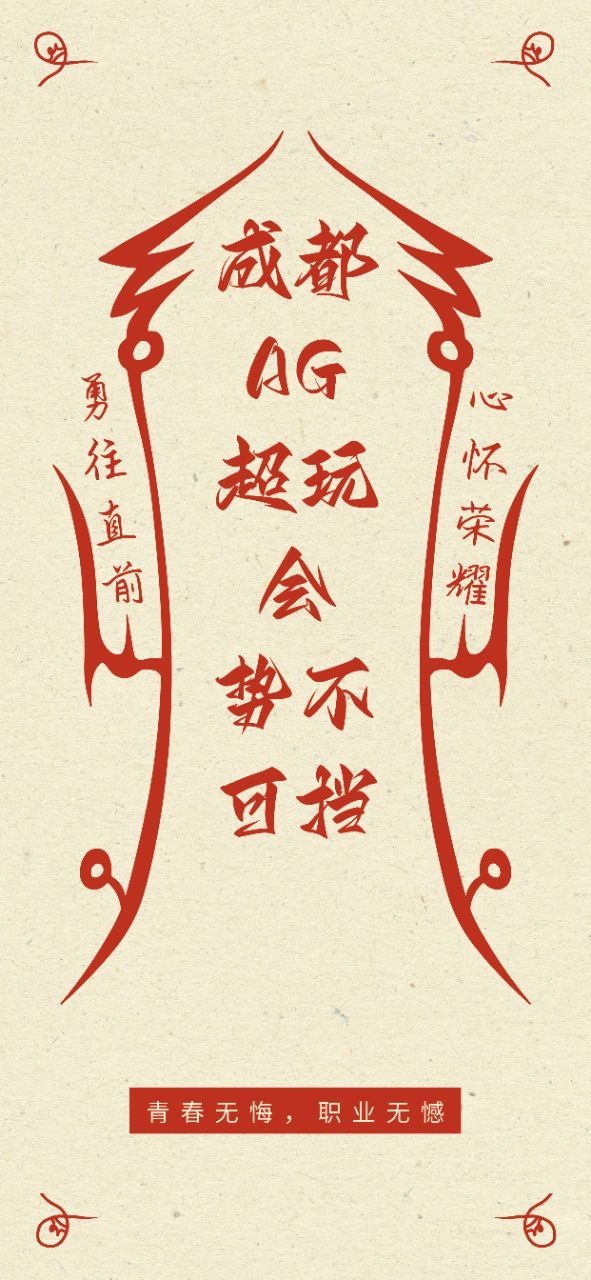 成都
AG
超玩
会
势不
可挡
勇往直前
心怀荣耀
青春无悔，职业无憾